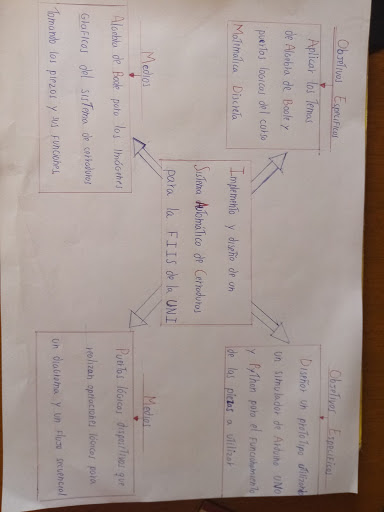 Objetivos Específicos
Aplicar los Temas
de Álgebra de Boole y
puertas lógicas del curso
Matemática Discreta
Objetivos Específicos
Diseñar un prototipo utilizando
un simulador de Arduino UNO
y Python para el funcionamiento
de las piezas a utilizar
Implemento y diseño de un
Sistema Automático de Cerraduras
para la FIIS de la UNI
Medios
Álgebra de Boole para las
Gráficas del sistema de cerraduras
Tomando las piezas y sus funciones
Medios
Puertas lógicas dispositivos que
realizan operaciones lógicas para
un diagrama y un flujo secuencial